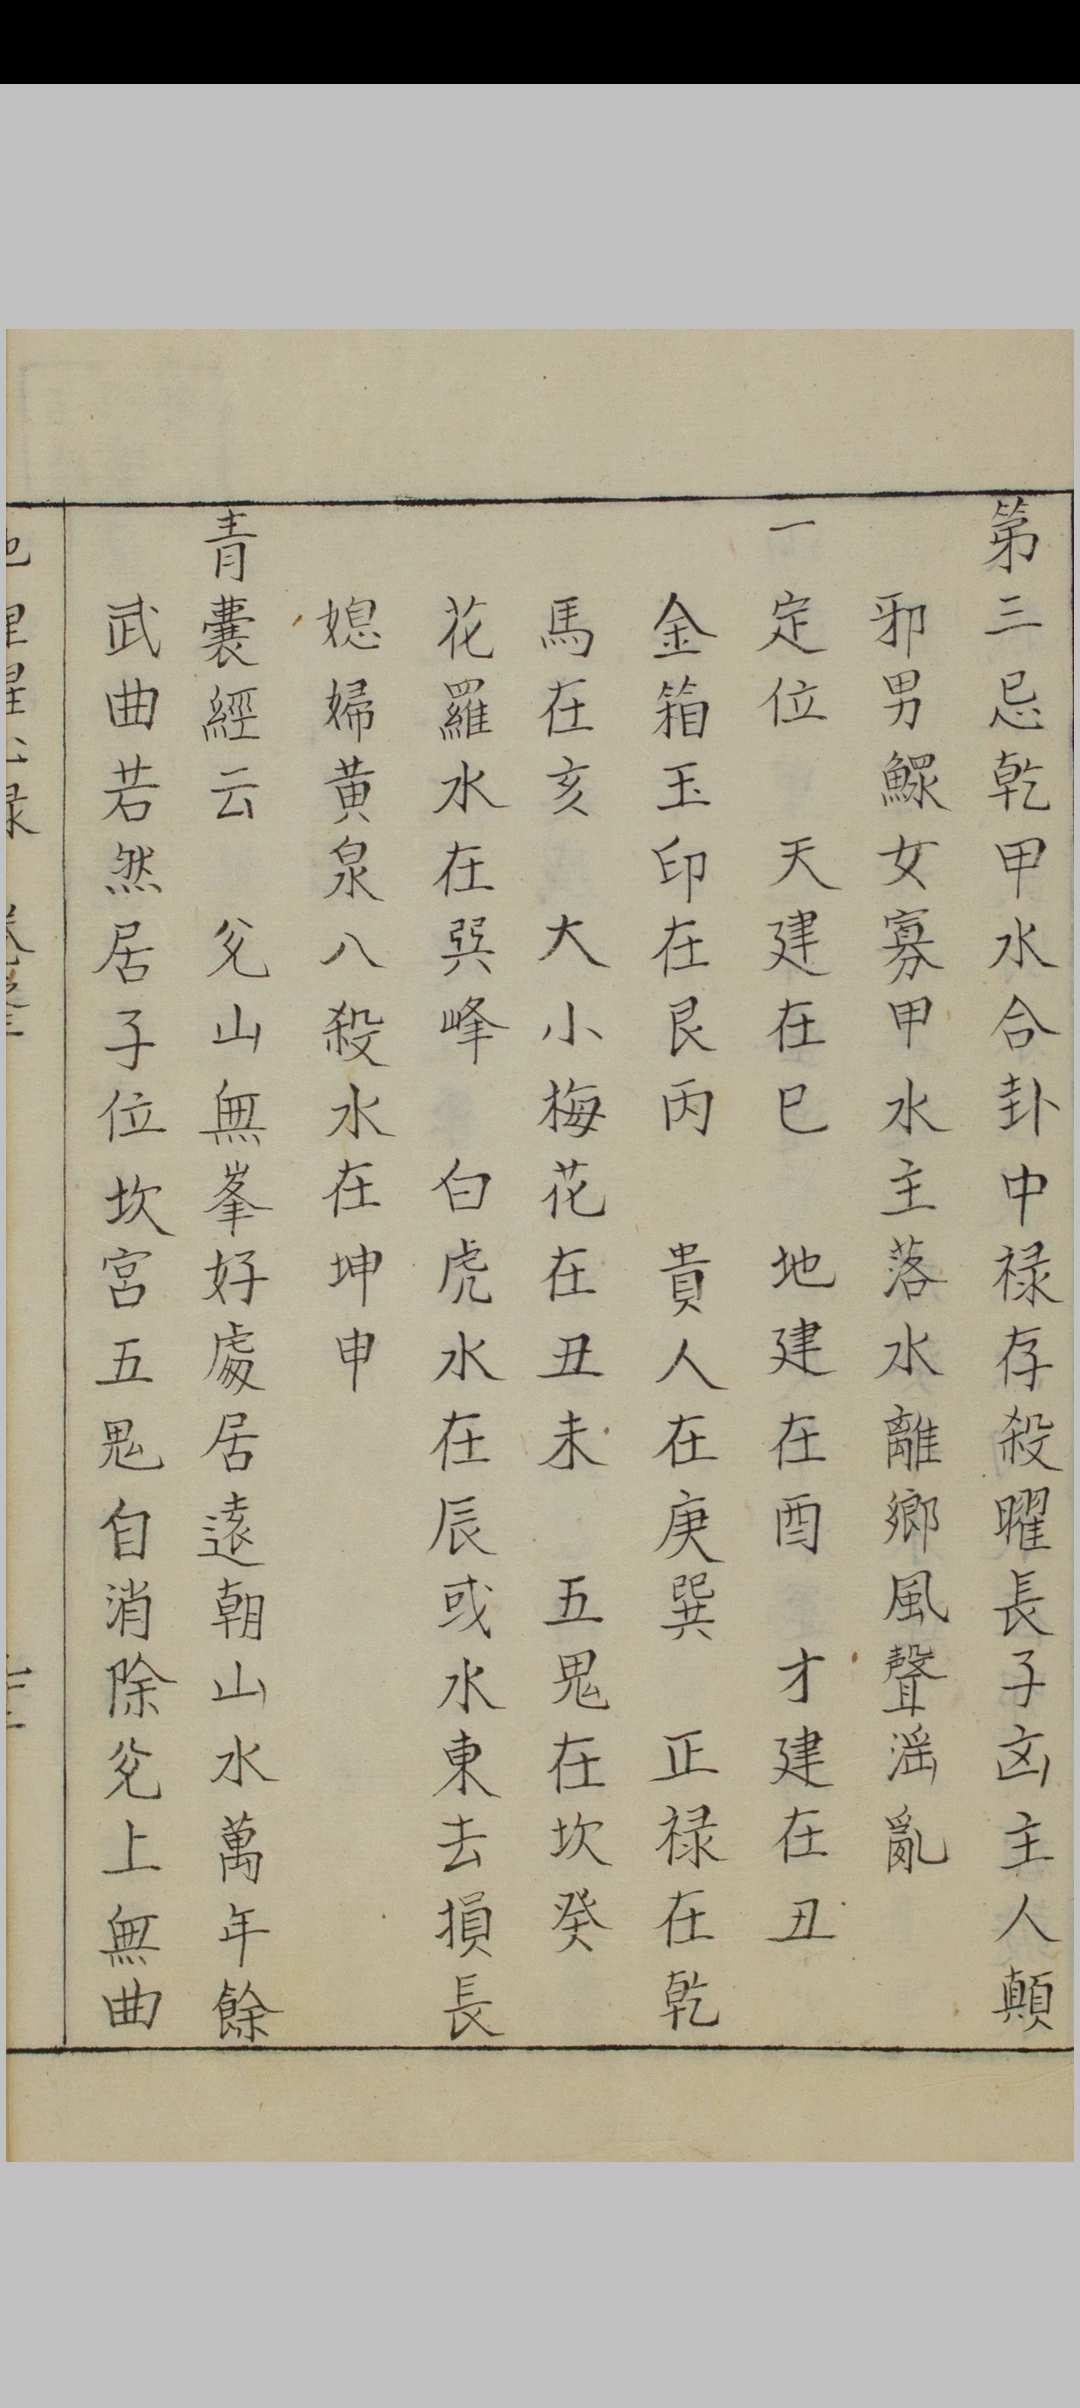 第三忌乾甲水合卦中禄存殺曜長子凶主人顛
邪男鰥女寡甲水主落水離鄉風聲淫亂
一定位 天建在巳 地建在酉 才建在丑
金箱玉印在艮丙 貴人在庚巽 正禄在乾
馬在亥 大小梅花在丑未 五鬼在坎癸
花羅水在巽峰 白虎水在辰或水東去損長
媳婦黄泉八殺水在坤申
青囊經云 兊山無峯好處居遠朝山水萬年餘
武曲若然居子位坎宮五鬼自消除兊上無曲